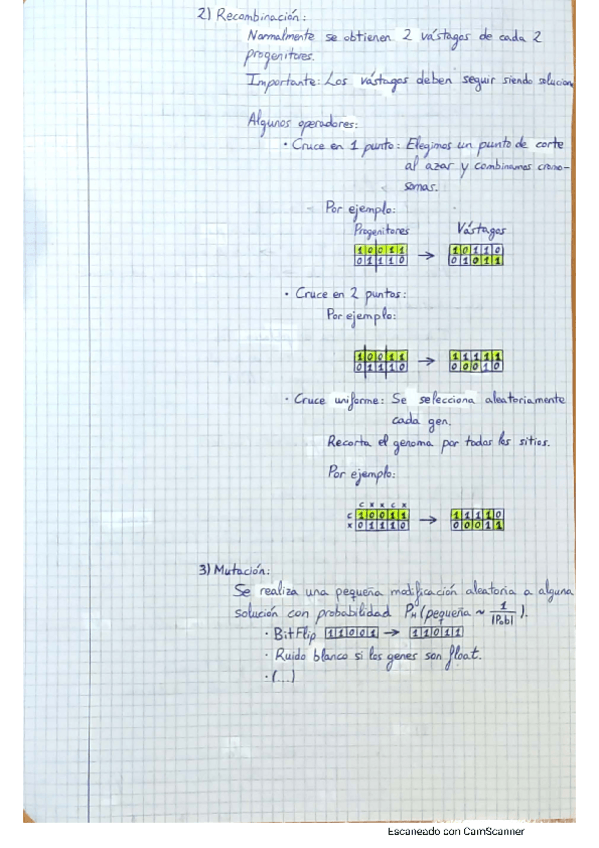 2) Recombinación:
Normalmente se obtienen 2 vástagos de cada 2
progenitores.
Importante: Los vástagos deben seguir siendo solucion
Algunos operadores:
· Cruce en 1 punto: Elegimos un punto de corte
al azar y combinamos cromo-
somas.
Por ejemplo:
Progenitores Vástagos
1 0 0 1 1 → 1 0 1 1 0
0 1 1 1 0 0 1 0 1 1
· Cruce en 2 puntos:
Por ejemplo:
1 0 0 1 1 → 1 1 1 1 1
0 1 1 1 0 0 0 0 1 0
· Cruce uniforme: Se selecciona aleatoriamente
cada gen.
Recorta el genoma por todos los sitios.
Por ejemplo:
C X X C X
C 1 0 0 1 1 → 1 1 1 1 0
X 0 1 1 1 0 0 0 0 1 1
3) Mutación:
Se realiza una pequeña modificación aleatoria a alguna
solución con probabilidad P_M (pequeña ~ 1/|Pob|).
· BitFlip 1 1 0 0 1 → 1 1 0 1 1
· Ruido blanco si los genes son float.
· (...)
Escaneado con CamScanner